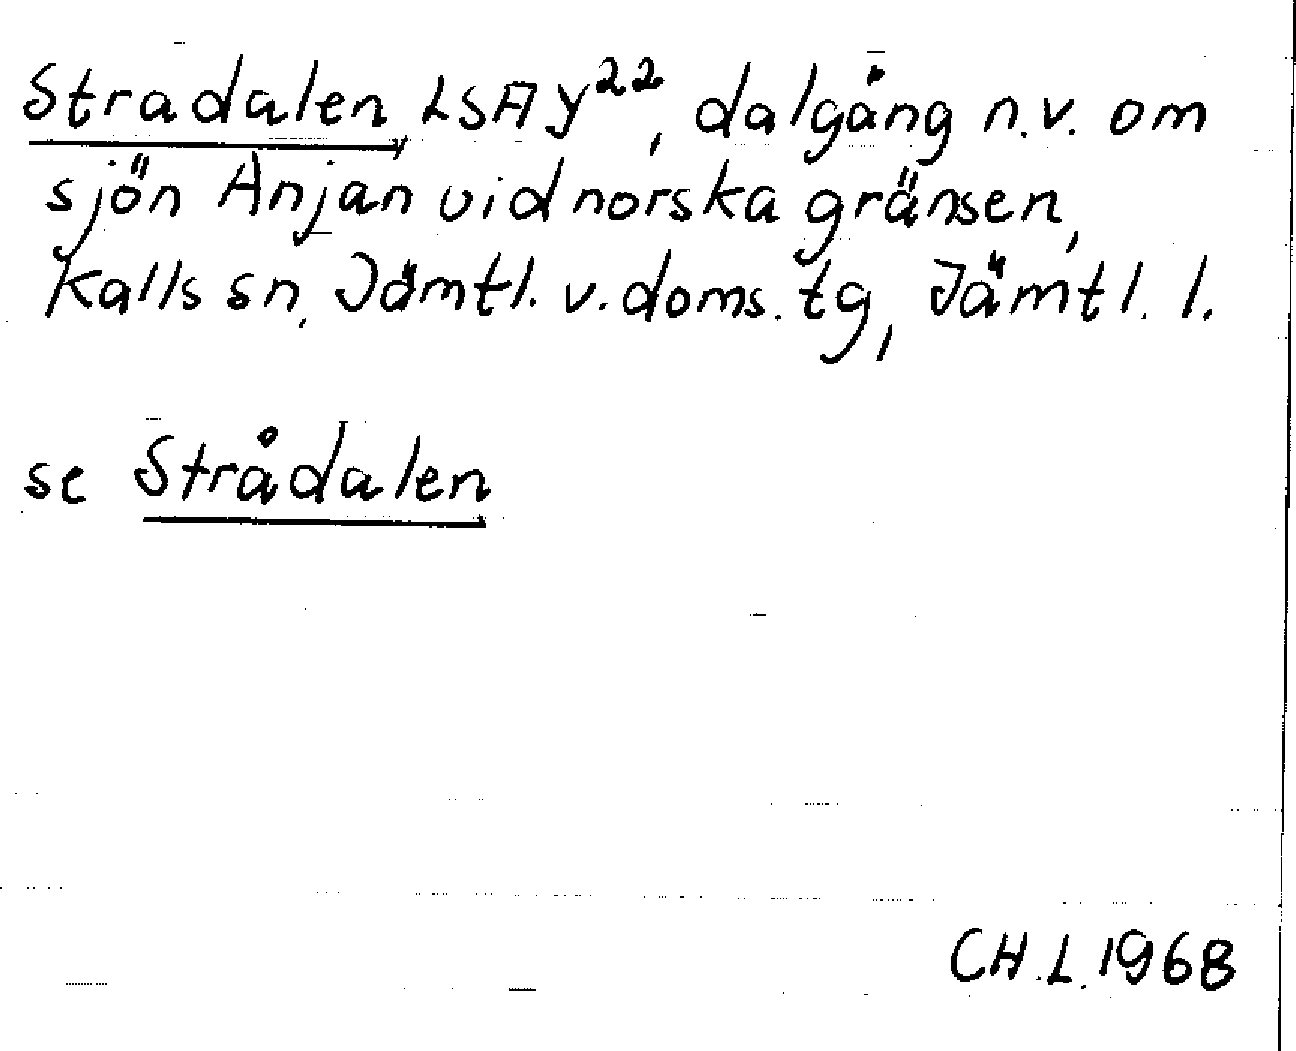 Stradalen, LSA Y²², dalgång n.v. om
sjön Anjan vid norska gränsen,
Kalls sn, Jämtl. v. doms. tg, Jämtl. l.
se Strådalen
CH.L. 1968